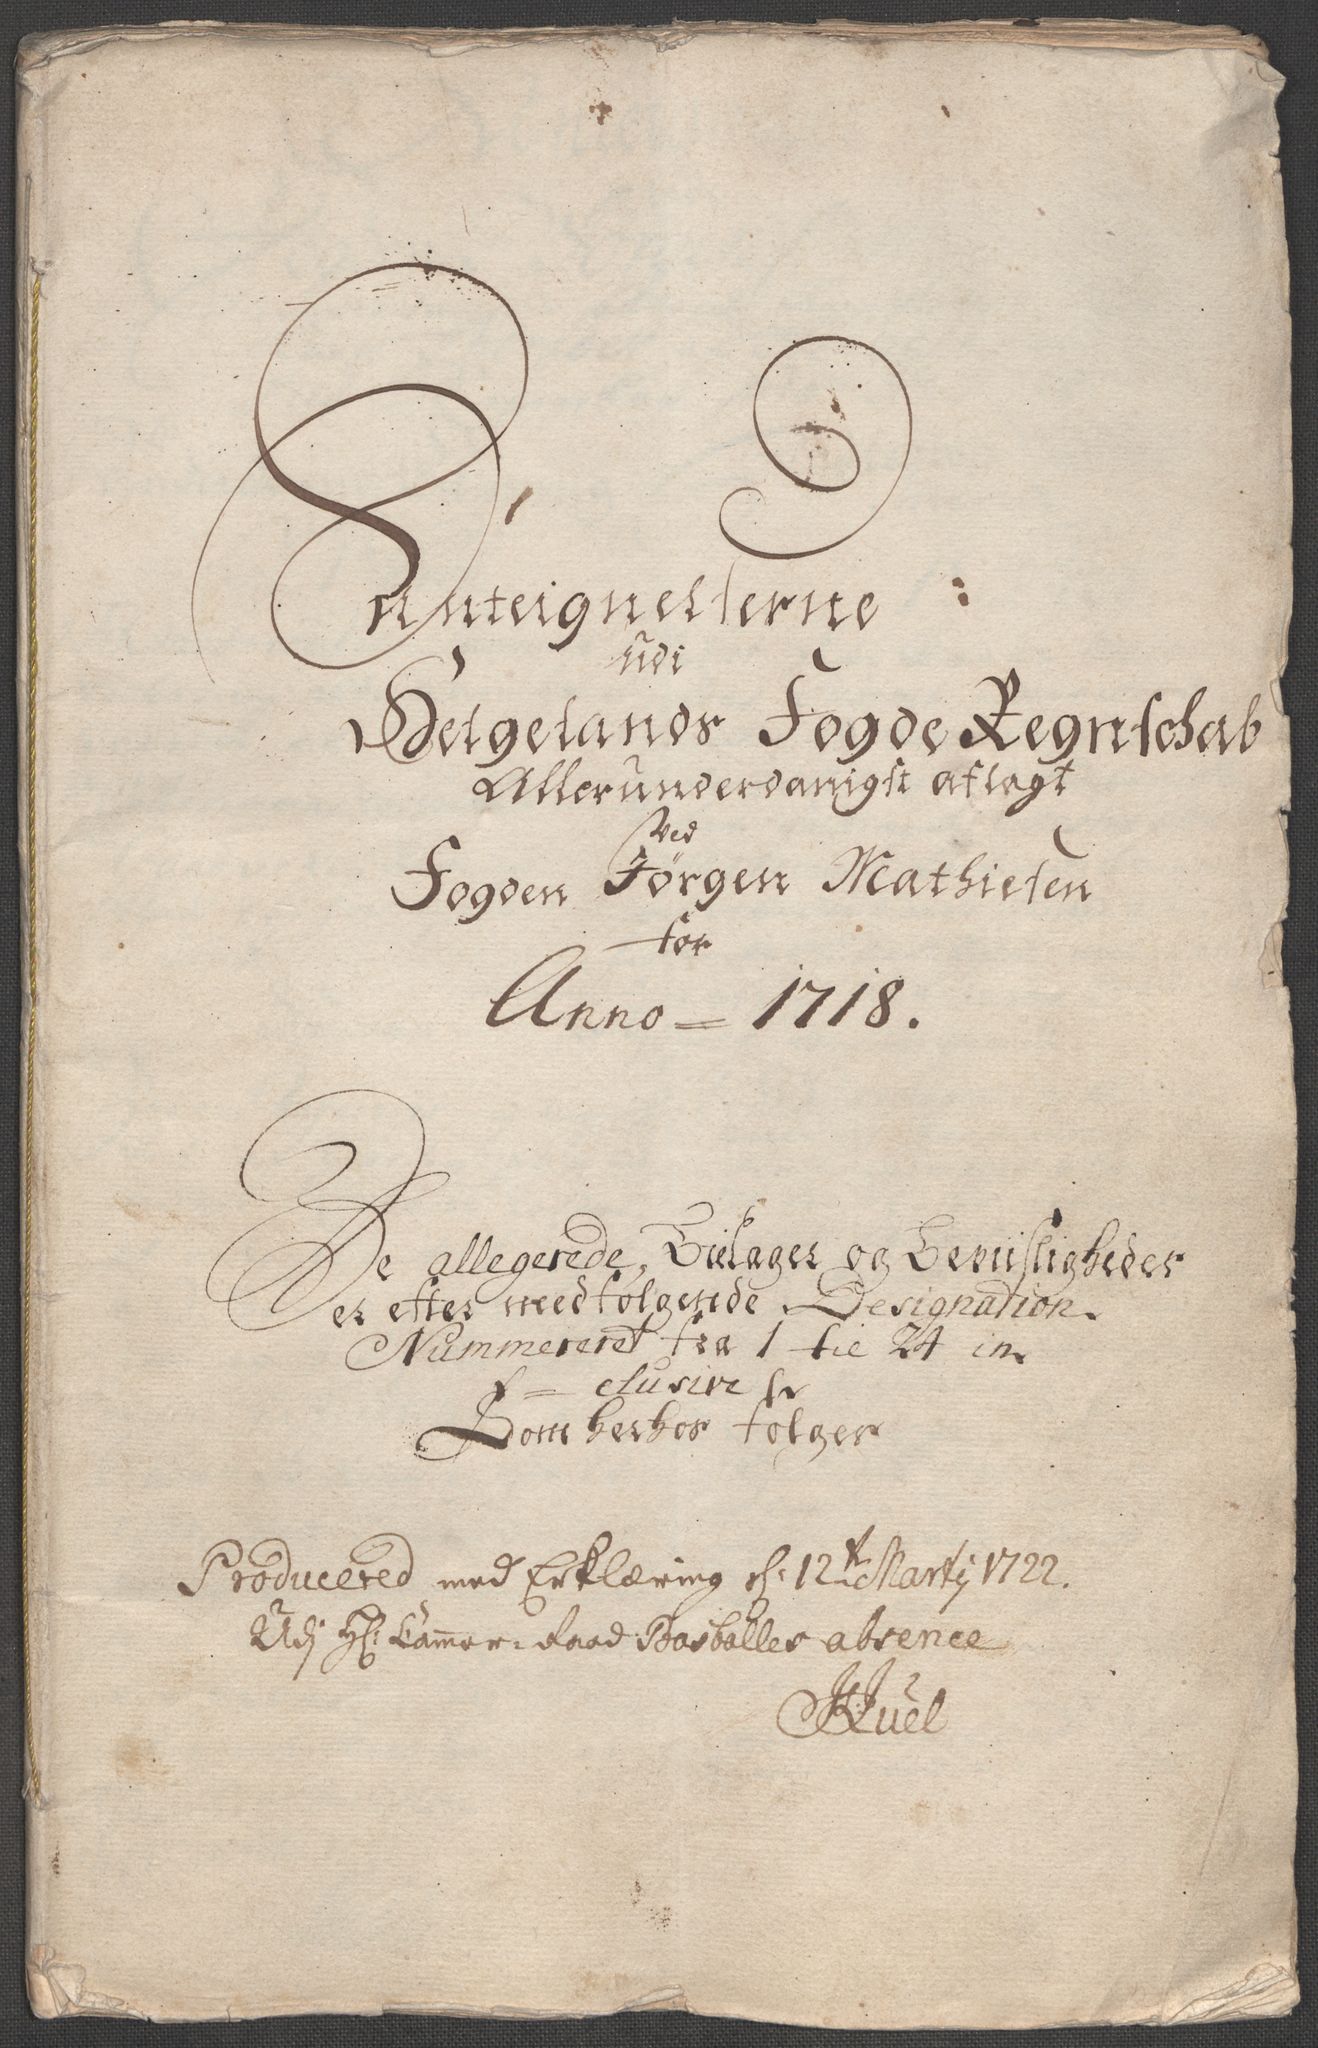 Anteignelserne
udi
Helgelands Fogde Regnschab
Allerunderdanigst aflagt
ved
Fogden Jørgen Mathiesen
for
Anno = 1718.
De allegerede, Bielager og Bevisligheder
er efter medfølgende Designation
Nummereret fra 1 til 24 in
= clusive
Som herhos følger
Producered med Erklæring d: 12t Martj 1722.
Udj Hr: Cammer-Raad Basballes absence
JJuel